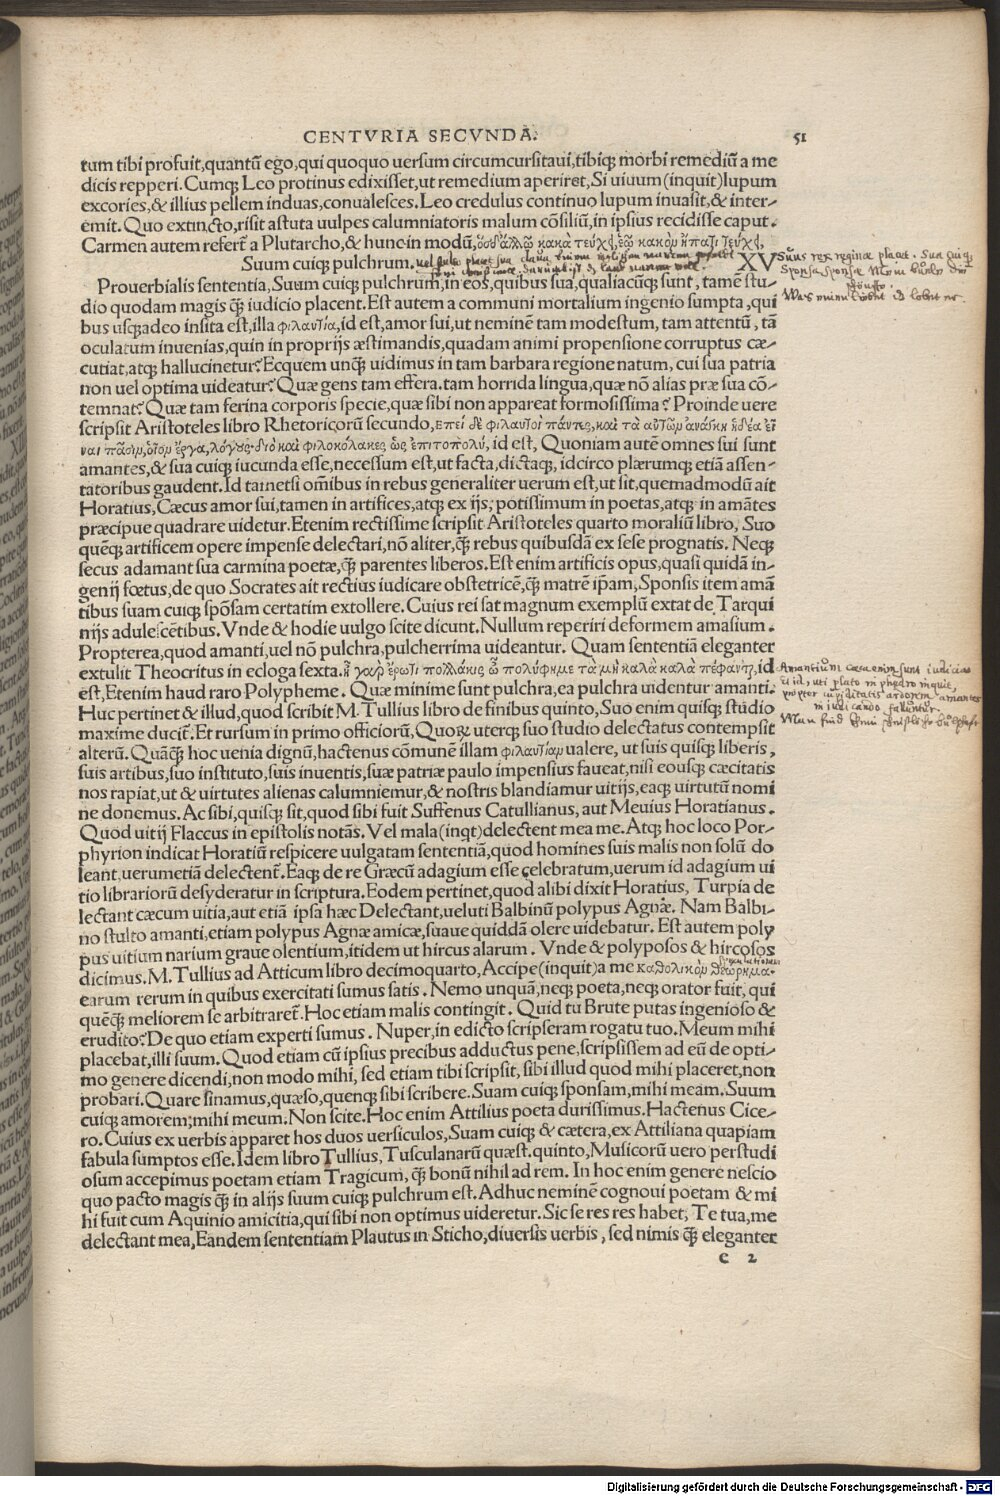 CENTVRIA SECVNDA. 51
tum tibi profuit,quantũ ego,qui quoquo uersum circumcursitaui,tibiq; morbi remediũ a me
dicis repperi.Cumq; Leo protinus edixisset,ut remedium aperiret,Si uiuum(inquit)lupum
excories,& illius pellem induas,conualesces.Leo credulus continuo lupum inuasit,& inter-
emit. Quo extincto,risit astuta uulpes calumniatoris malum cõsiliũ,in ipsius recidisse caput.
Carmen autem refert a Plutarcho,& hunc in modũ,
Suum cuiq; pulchrum. XV
Prouerbialis sententia,Suum cuiq; pulchrum,in eos,quibus sua,qualiacũq; sunt, tamẽ stu-
dio quodam magis q̃ iudicio placent.Est autem a communi mortalium ingenio sumpta,qui
bus usq;adeo insita est,illa φιλαυτία,id est,amor sui,ut neminẽ tam modestum, tam attentũ, tã
oculatum inuenias,quin in proprijs æstimandis,quadam animi propensione corruptus cæ-
cutiat,atq; hallucinetur?Ecquem unq̃ uidimus in tam barbara regione natum, cui sua patria
non uel optima uideatur?Quæ gens tam effera.tam horrida lingua,quæ nõ alias præ sua cõ-
temnat? Quæ tam ferina corporis specie,quæ sibi non appareat formosissima? Proinde uere
scripsit Aristoteles libro Rhetoricorũ secundo, ἐπεὶ δὲ φίλαυτοι πάντες, καὶ τὰ αὑτῶν ἀνάγκη ἡδέα εἶ
ναι πᾶσιν,οἷον ἔργα,λόγους.διὸ καὶ φιλοκόλακες ὡς ἐπιτοπολύ, id est, Quoniam autẽ omnes sui sunt
amantes,& sua cuiq; iucunda esse,necessum est,ut facta,dictaq;, idcirco plærumq; etiã assen-
tatoribus gaudent.Id tametsi oĩbus in rebus generaliter uerum est,ut sit,quemadmodũ ait
Horatius,Cæcus amor sui,tamen in artifices,atq; ex ijs, potissimum in poetas,atq; in amãtes
præcipue quadrare uidetur.Etenim rectissime scripsit Aristoteles quarto moraliũ libro, Suo
quẽq; artificem opere impense delectari,nõ aliter,q̃ rebus quibusdã ex sese prognatis. Neq;
secus adamant sua carmina poetæ,q̃ parentes liberos.Est enim artificis opus,quasi quidã in-
genij fœtus,de quo Socrates ait rectius iudicare obstetricẽ,q̃ matrẽ ip̃am,Sponsis item amã
tibus suam cuiq; spõsam certatim extollere. Cuius rei sat magnum exemplũ extat de Tarqui
nijs adulescẽtibus.Vnde & hodie uulgo scite dicunt.Nullum reperiri deformem amasium.
Propterea,quod amanti,uel nõ pulchra,pulcherrima uideantur. Quam sententiã eleganter
extulit Theocritus in ecloga sexta.ἦ γὰρ ἔρωτι πολλάκις ὦ πολύφημε τὰ μὴ καλὰ καλὰ πέφανται, id
est,Etenim haud raro Polypheme. Quæ minime sunt pulchra,ea pulchra uidentur amanti.
Huc pertinet & illud,quod scribit M.Tullius libro de finibus quinto,Suo enim quisq; studio
maxime ducit.Et rursum in primo officiorũ,Quorũ uterq; suo studio delectatus contempsit
alterũ. Quãq̃ hoc uenia dignũ,hactenus cõmunẽ illam φιλαυτίαν ualere, ut suis quisq; liberis,
suis artibus,suo instituto,suis inuentis,suæ patriæ paulo impensius faueat,nisi eousq; cæcitatis
nos rapiat,ut & uirtutes alienas calumniemur,& nostris blandiamur uitijs,eaq; uirtutũ nomi
ne donemus.Ac sibi,quisq; sit,quod sibi fuit Suffenus Catullianus, aut Meuius Horatianus.
Quod uitij Flaccus in epistolis notãs.Vel mala(inqt)delectent mea me.Atq; hoc loco Por-
phyrion indicat Horatiũ respicere uulgatam sententiã,quod homines suis malis non solũ do
leant,uerumetiã delectent.Eaq; de re Græcũ adagium esse celebratum,uerum id adagium ui
tio librariorũ desyderatur in scriptura.Eodem pertinet,quod alibi dixit Horatius, Turpia de
lectant cæcum uitia,aut etiã ipsa hæc Delectant,ueluti Balbinũ polypus Agnæ. Nam Balbi-
no stulto amanti,etiam polypus Agnæ amicæ,suaue quiddã olere uidebatur. Est autem poly
pus uitium narium graue olentium,itidem ut hircus alarum. Vnde & polyposos & hircosos
dicimus.M.Tullius ad Atticum libro decimoquarto,Accipe(inquit)a me καθολικὸν θεώρημα.
earum rerum in quibus exercitati sumus satis. Nemo unquã,neq; poeta,neq; orator fuit, qui
quẽq̃ meliorem se arbitraret.Hoc etiam malis contingit. Quid tu Brute putas ingenioso &
erudito?De quo etiam experti sumus. Nuper,in edicto scripseram rogatu tuo.Meum mihi
placebat,illi suum.Quod etiam cũ ipsius precibus adductus pene,scripsissem ad eũ de opti-
mo genere dicendi,non modo mihi, sed etiam tibi scripsit, sibi illud quod mihi placeret,non
probari.Quare sinamus,quæso,quenq; sibi scribere.Suam cuiq; sponsam,mihi meam.Suum
cuiq; amorem;mihi meum.Non scite.Hoc enim Attilius poeta durissimus.Hactenus Cice-
ro.Cuius ex uerbis apparet hos duos uersiculos,Suam cuiq; & cætera,ex Attiliana quapiam
fabula sumptos esse.Idem libro Tullius,Tusculanarũ quæst.quinto,Musicorũ uero perstudi
osum accepimus poetam etiam Tragicum, q̃ bonũ nihil ad rem. In hoc enim genere nescio
quo pacto magis q̃ in alijs suum cuiq; pulchrum est.Adhuc neminẽ cognoui poetam & mi
hi fuit cum Aquinio amicitia,qui sibi non optimus uideretur.Sic se res res habet, Te tua,me
delectant mea,Eandem sententiam Plautus in Sticho,diuersis uerbis, sed nimis q̃ eleganter
c 2
Suus rex reginæ placet. Sua cuiq;
Sponsa
Amantium cæca enim sunt iudicia
et id, uti plato in phędro inquit,
propter cupiditatis ardorem amantes
in iudicando falluntur.
Digitalisierung gefördert durch die Deutsche Forschungsgemeinschaft - DFG